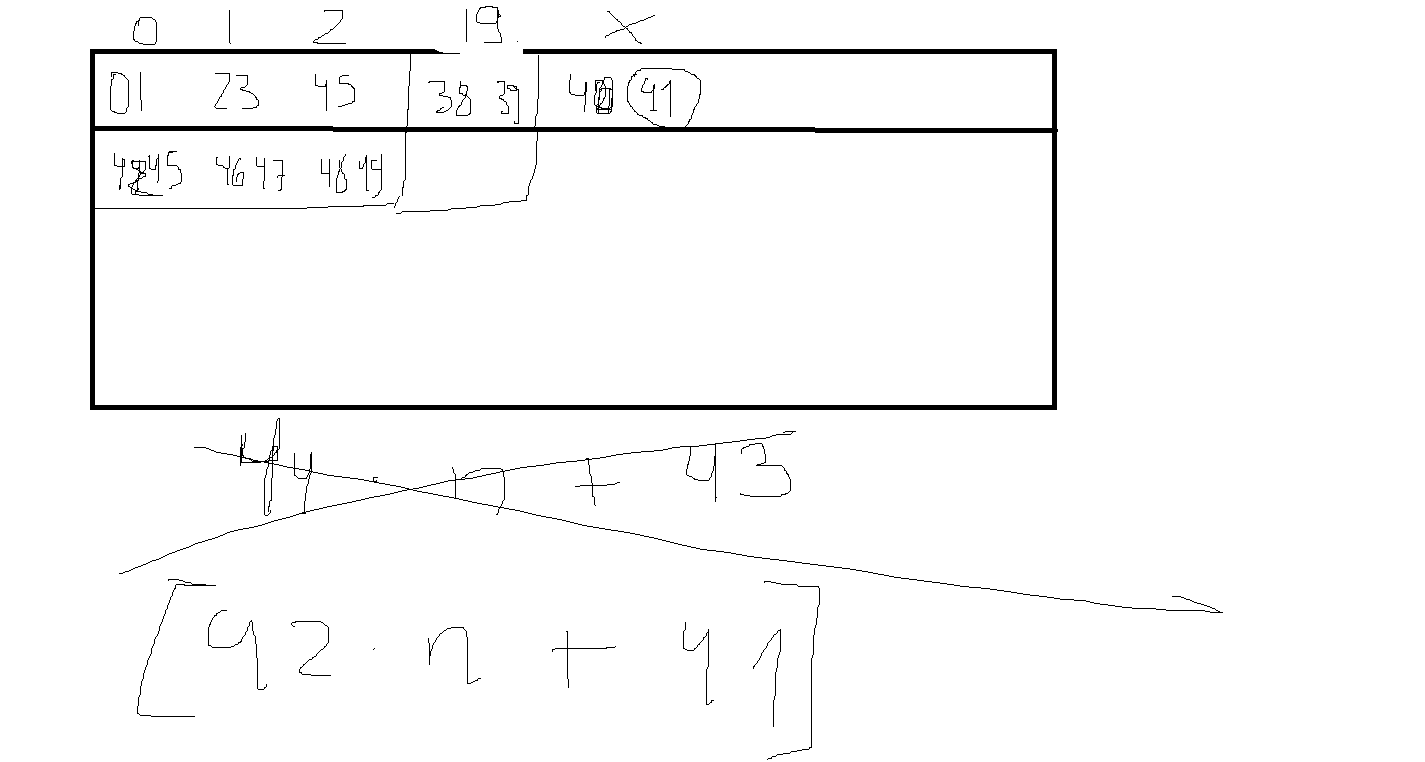 0 1 2 19 X
01 23 45 38 39 40 41
4245 4647 4849
44 · n + 43
[42 · n + 41]